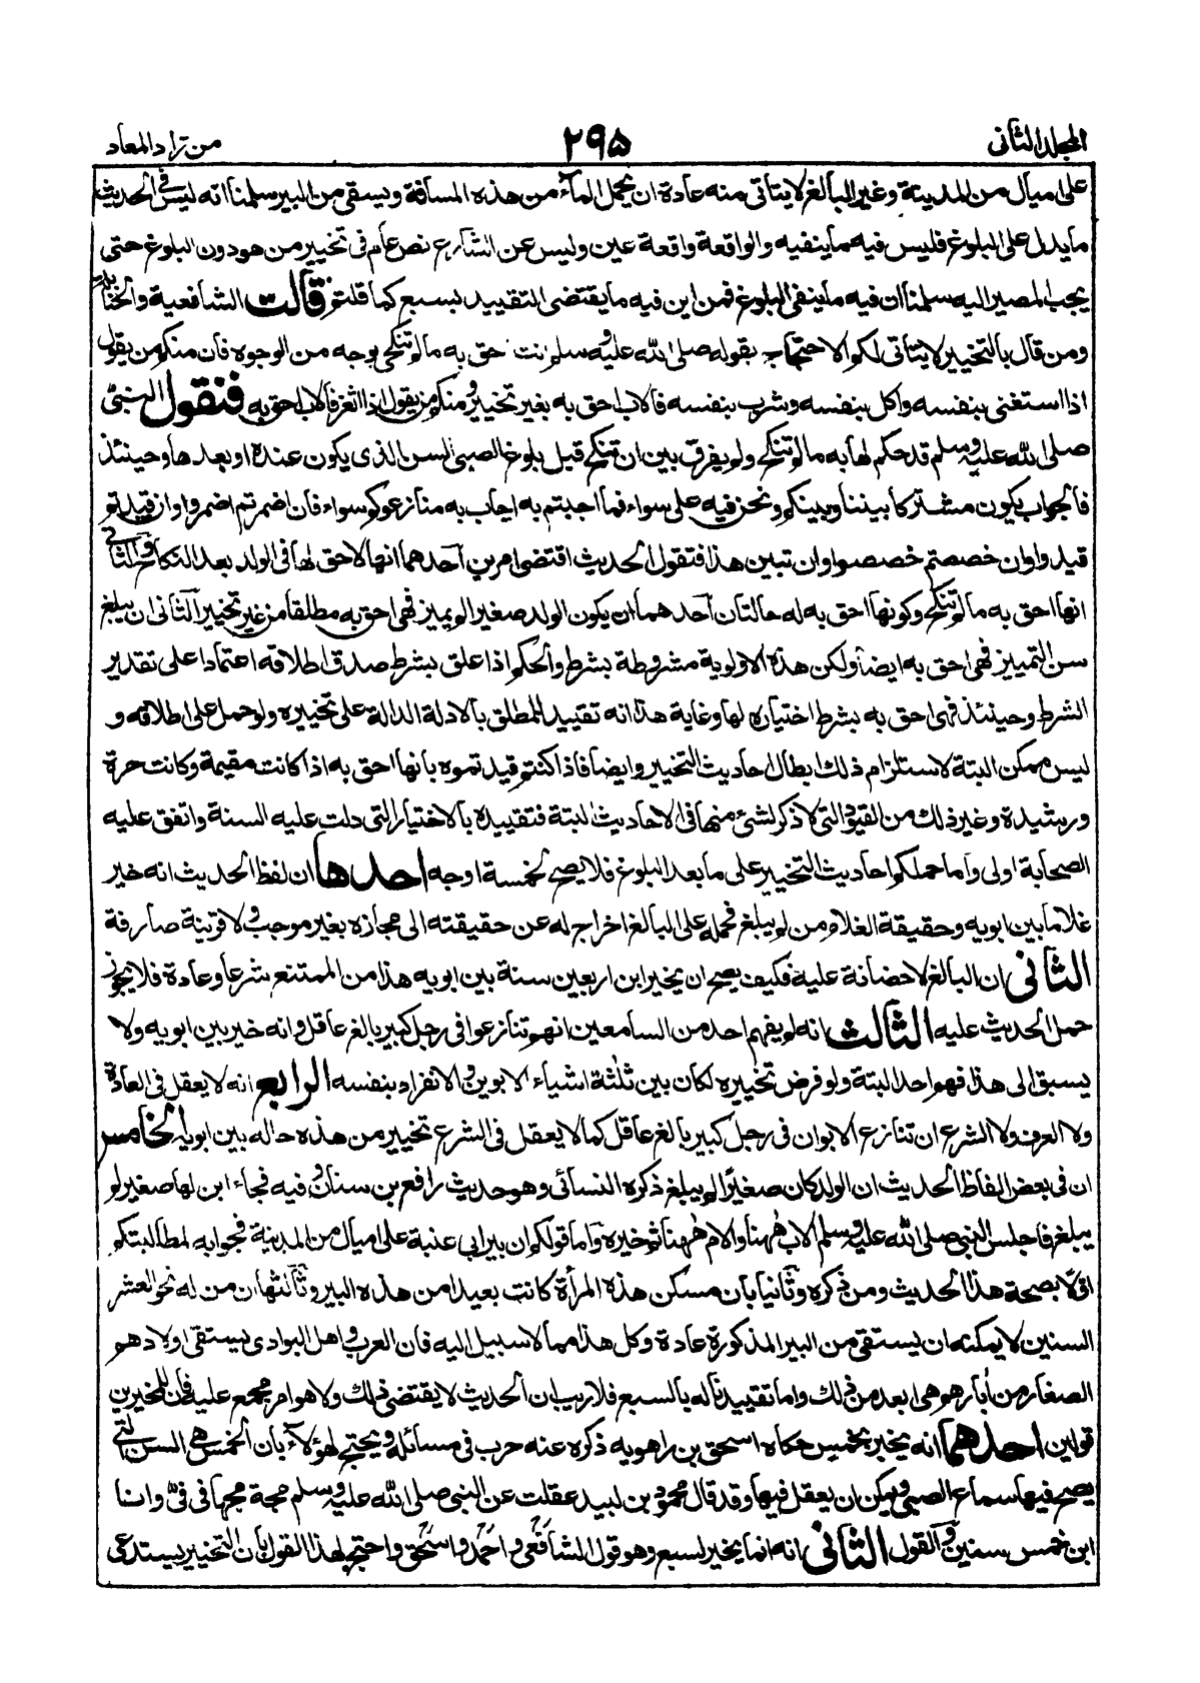 المجلد الثاني
٢٩٥
من زاد المعاد
على اميال من المدينة وغير البالغ لا يتأتى منه عادة ان يحمل الماء من هذه المسافة ويسقى من البير سلمنا انه ليس في الحديث
ما يدل على البلوغ فليس فيه ما ينفيه والواقعة واقعة عين وليس عن الشارع نص عام فى تخيير من هو دون البلوغ حتى
يجب المصير اليه سلمنا ان فيه ما ينفى البلوغ فمن اين فيه ما يقتضى التقييد بسبع كما قلتم قالت الشافعية والحنابلة
ومن قال بالتخيير لا يتأتى لكم الاحتجاج بقوله صلى الله عليه وسلم انت احق به ما لم تنكحى بوجه من الوجوه فان منكم من يقول
اذا استغنى بنفسه واكل بنفسه وشرب بنفسه فالاب احق به بغير تخيير ومنكم من يقول اذا اثغر فالاب احق به فنقول النبى
صلى الله عليه وسلم قد حكم لها به ما لم تنكح ولم يفرق بين ان تنكح قبل بلوغ الصبى السن الذى يكون عنده او بعدها وحينئذ
فالجواب يكون مشتركا بيننا وبينكم ونحن فيه على سواء فما اجبتم به اجاب به منازعوكم سواء فان اضمرتم اضمروا وان قيدتم
قيدوا وان خصصتم خصصوا وان تبين هذا فنقول الحديث اقتضى امرين احدهما انها لا حق لها فى الولد بعد النكاح والثانى
انها احق به ما لم تنكح وكونها احق به له حالتان احدهما ان يكون الولد صغيرا لم يميز فهى احق به مطلقا من غير تخيير الثانى ان يبلغ
سن التمييز فهى احق به ايضا ولكن هذه الاولوية مشروطة بشرط والحكم اذا علق بشرط صدق اطلاقه اعتمادا على تقدير
الشرط وحينئذ فهى احق به بشرط اختياره لها وغاية هذا انه تقييد للمطلق بالادلة الدالة على تخييره ولو حمل على اطلاقه و
ليس بممكن البتة لاستلزام ذلك ابطال احاديث التخيير وايضا فاذا كنتم قيدتموه بانها احق به اذا كانت مقيمة وكانت حرة
ورشيدة وغير ذلك من القيود التى لا ذكر لشئ منها فى الاحاديث البتة فتقييده بالاختيار التى دلت عليه السنة واتفق عليه
الصحابة اولى واما حملكم احاديث التخيير على ما بعد البلوغ فلا يصح لخمسة اوجه احدها ان لفظ الحديث انه خير
غلاما بين ابويه وحقيقة الغلام من لم يبلغ فحمله على البالغ اخراج له عن حقيقته الى مجازه بغير موجب ولا قرينة صارفة
الثانى ان البالغ لا حضانة عليه فكيف يصح ان يخير ابن اربعين سنة بين ابويه هذا من الممتنع شرعا وعادة فلا يجوز
حمل الحديث عليه الثالث انه لم يفهم احد من السامعين انهم تنازعوا فى رجل كبير بالغ عاقل وانه خير بين ابويه ولا
يسبق الى هذا فهم احد البتة ولو فرض تخييره لكان بين ثلثة اشياء الابوين والانفراد بنفسه الرابع انه لا يعقل فى العادة
ولا العرف ولا الشرع ان تنازع الابوان فى رجل كبير بالغ عاقل كما لا يعقل فى الشرع تخيير من هذه حاله بين ابويه الخامس
ان فى بعض الفاظ الحديث ان الولد كان صغيرا لم يبلغ ذكره النسائى وهو حديث رافع بن سنان وفيه فجاء ابن لها صغير لم
يبلغ فاجلس النبى صلى الله عليه وسلم الاب ههنا والام ههنا ثم خيره واما قولكم ان بير ابى عنبة على اميال من المدينة فجوابه لمطالبتكم
اولا بصحة هذا الحديث ومن ذكره وثانيا بان مسكن هذه المرأة كانت بعيدا من هذه البير وثالثا ان من له نحو العشر
السنين لا يمكنه ان يستقى من البير المذكورة عادة وكل هذا مما لا سبيل اليه فان العرب واهل البوادى يستقى اولادهم
الصغار من ابار هم هى ابعد من ذلك واما تقييدنا له بالسبع فلا ريب ان الحديث لا يقتضى ذلك ولا هو امر مجمع عليه فان للمخيرين
قولين احدهما انه يخير بخمس حكاه اسحق بن راهويه ذكره عنه حرب فى مسائله ويحتج لهؤلاء بان الخمس هى السن التى
يصح فيها سماع الصبى ويمكن ان يعقل فيها وقد قال محمود بن لبيد عقلت عن النبى صلى الله عليه وسلم مجة مجها فى فىّ وانا
ابن خمس سنين والقول الثانى انه انما يخير لسبع وهو قول الشافعى واحمد واسحق واحتج لهذا القول بان التخيير يستدعى